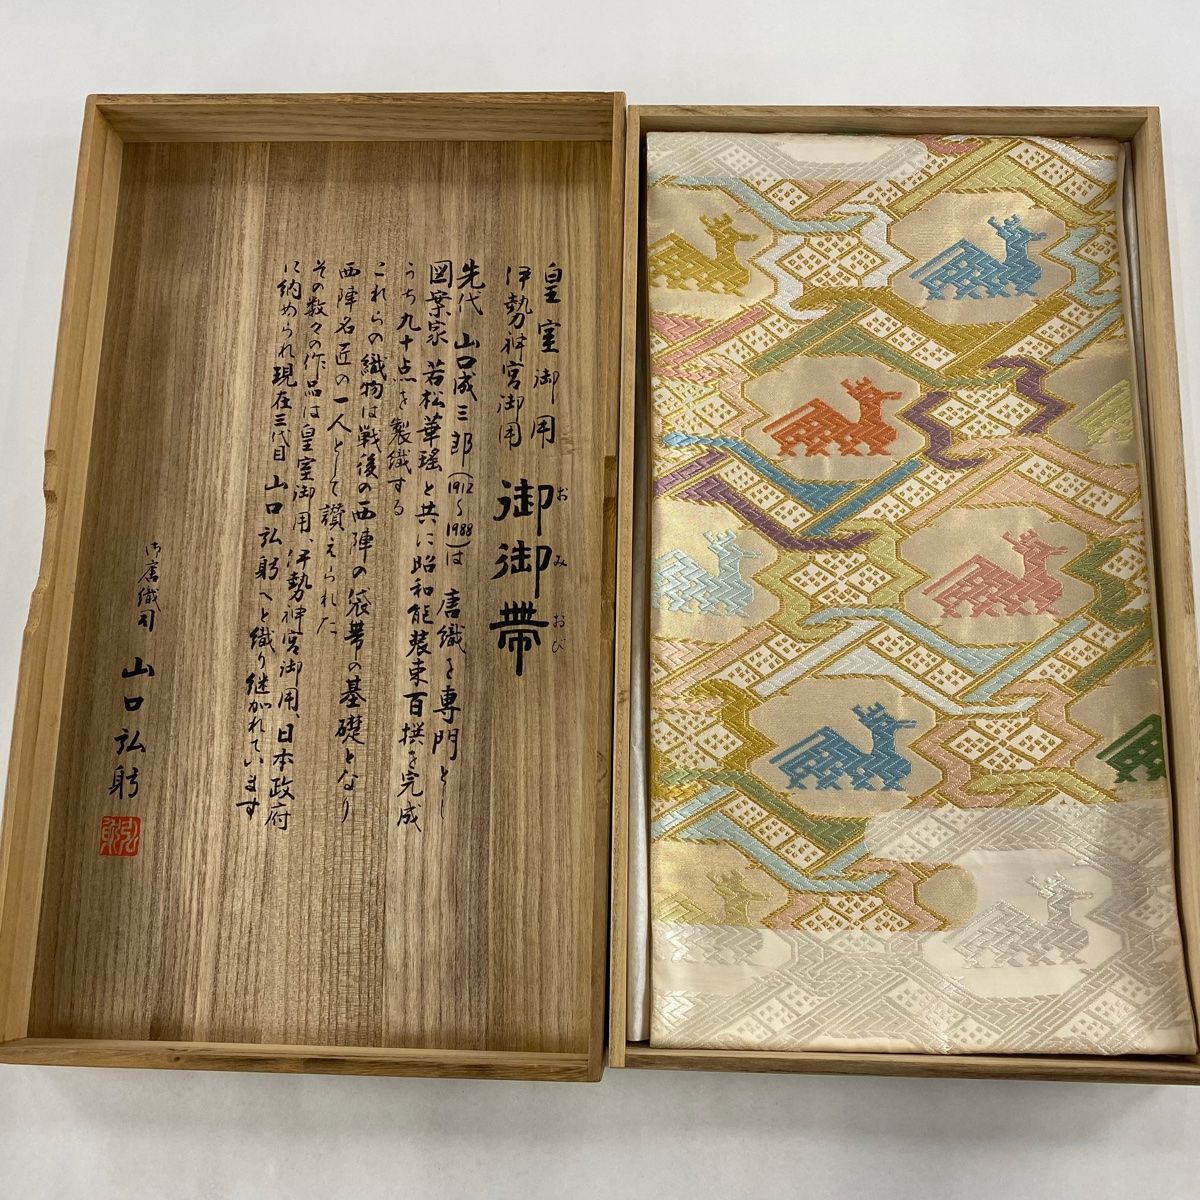 皇室御用
伊勢神宮御用
御御帯
おみおび
先代 山口成三郎(1912〜1988)は 唐織を専門とし
図案家 若松華瑤と共に昭和能装束百撰を完成
うち九十点を製織する
これらの織物は戦後の西陣の袋帯の基礎となり
西陣名匠の一人として讃えられた
その数々の作品は皇室御用、伊勢神宮御用、日本政府
に納められ現在三代目 山口弘躬へと織り継がれています
御唐織司 山口弘躬
弘躬